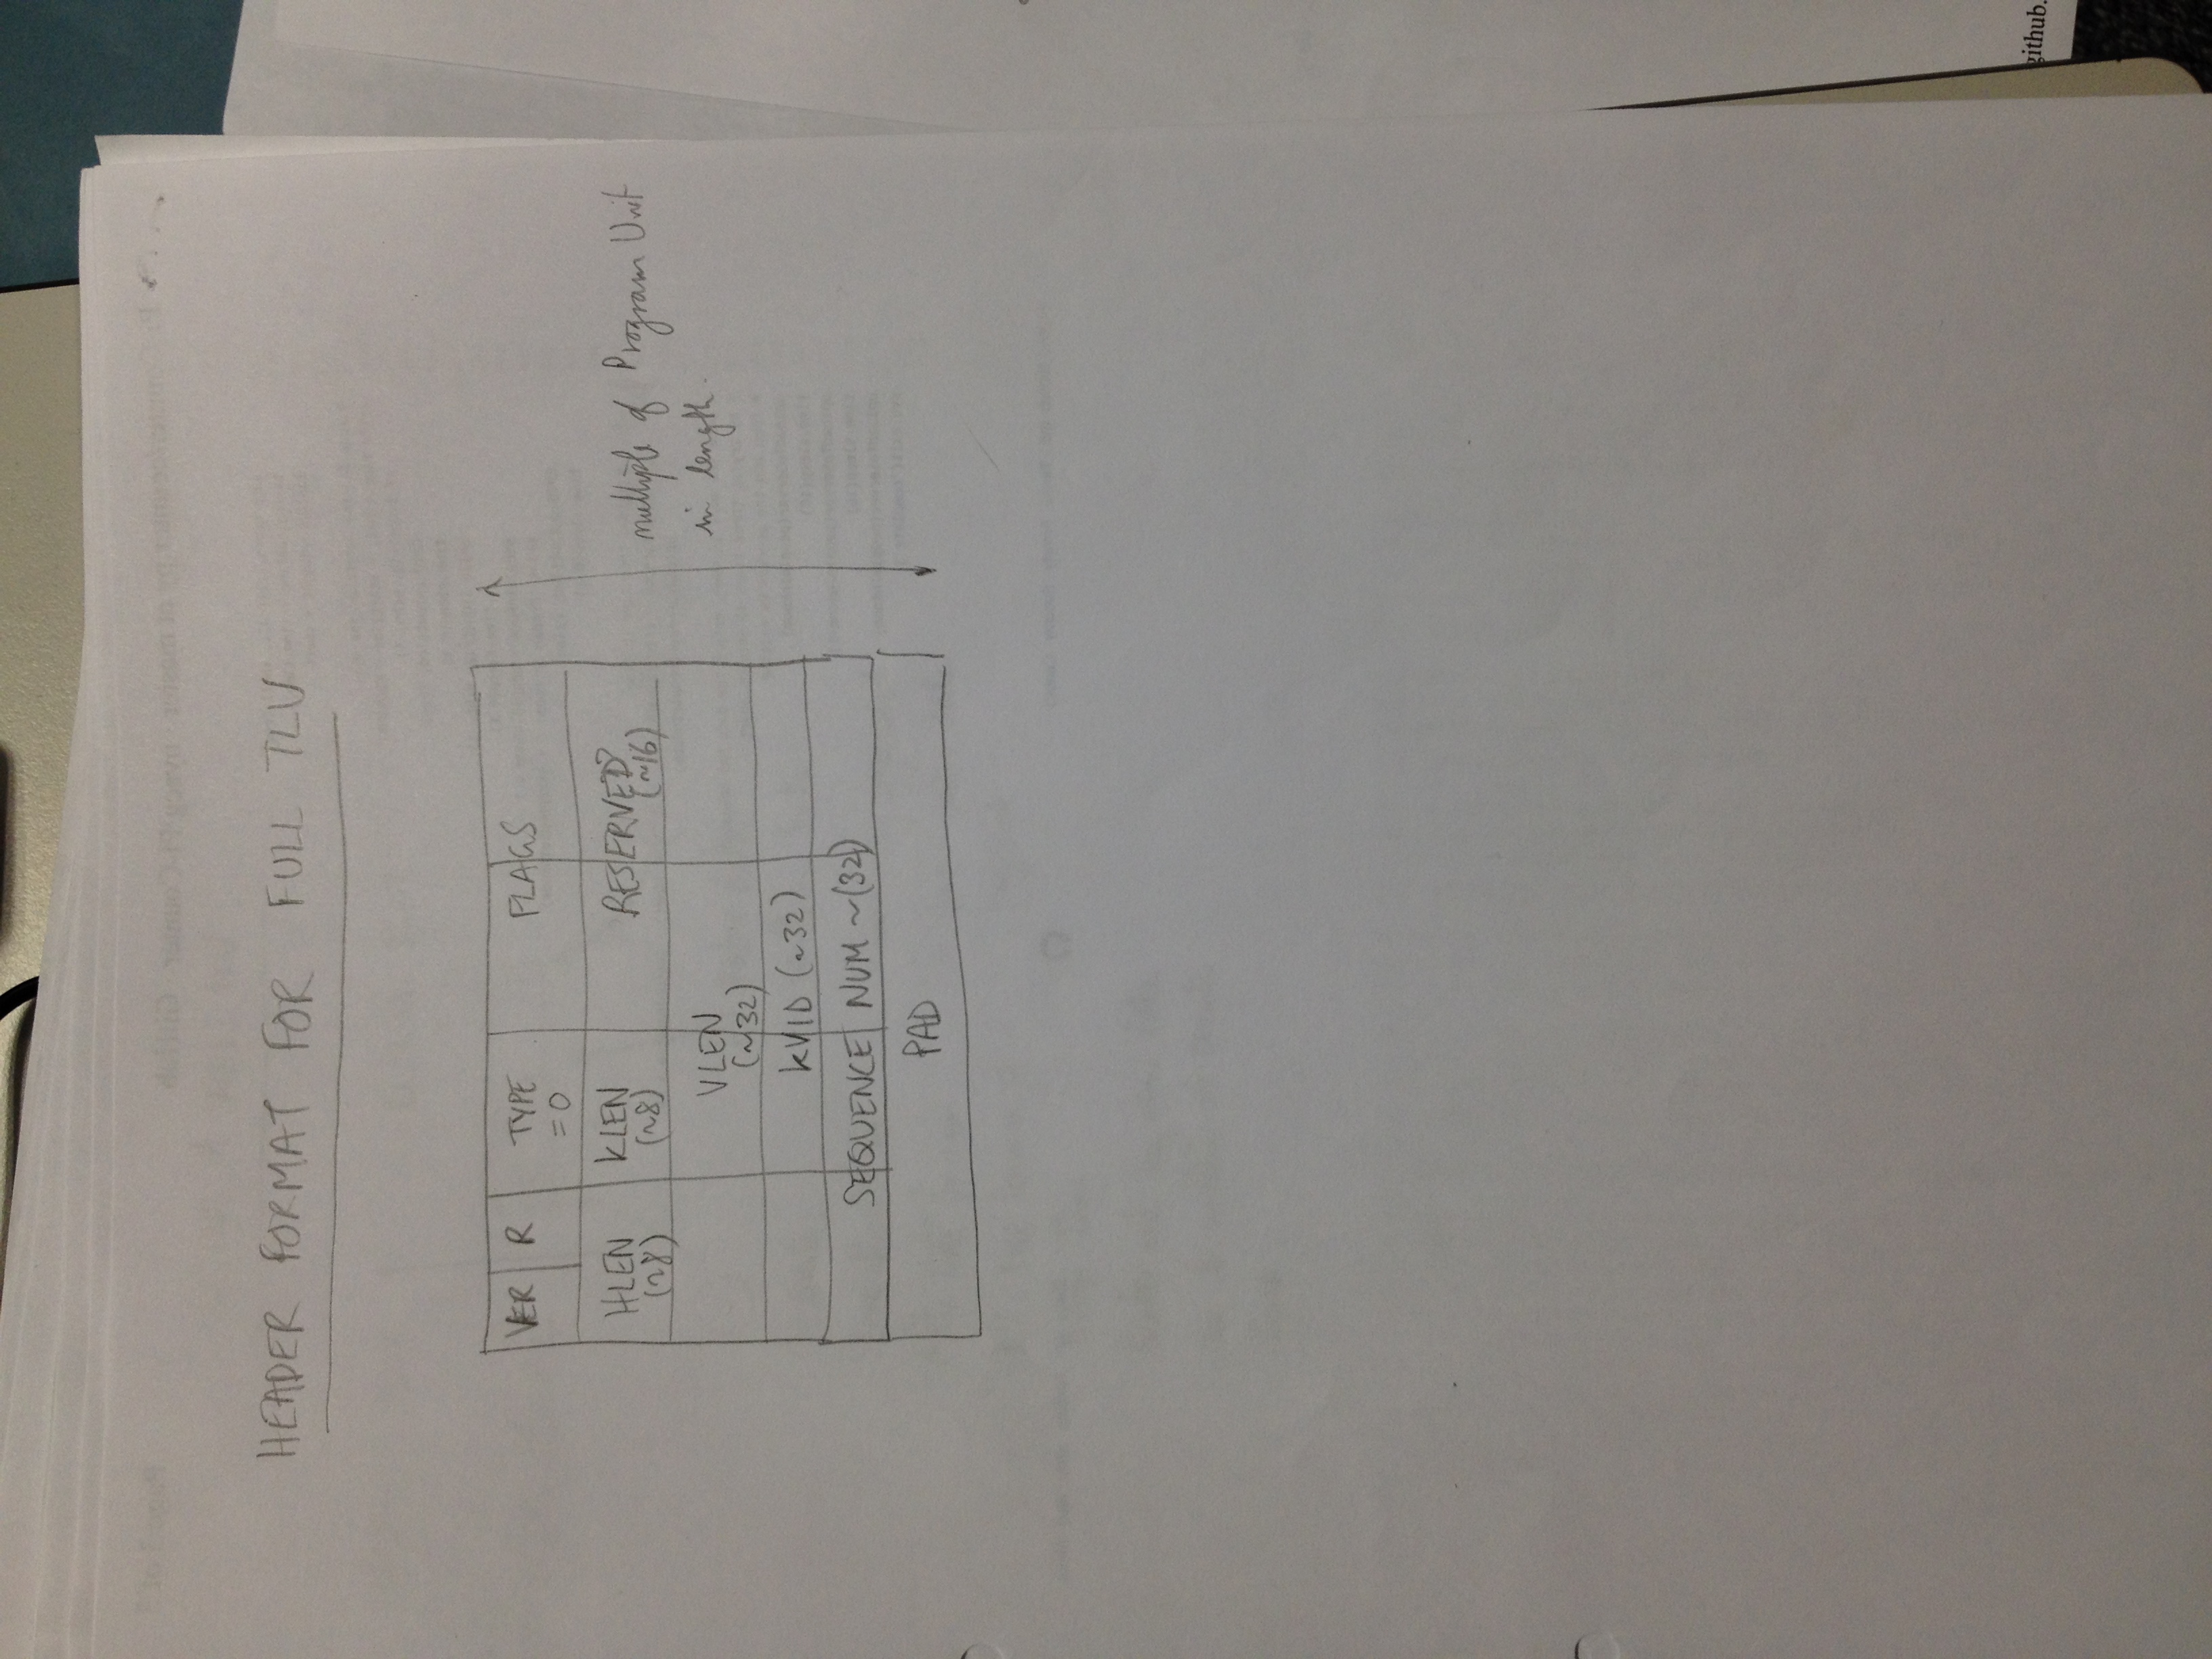 HEADER FORMAT FOR FULL TLV
VER R TYPE FLAGS
=0
HLEN KLEN RESERVED?
(~8) (~8) (~16)
VLEN
(~32)
KVID (~32)
SEQUENCE NUM ~(32)
PAD
multiple of Program Unit
in length.
github.